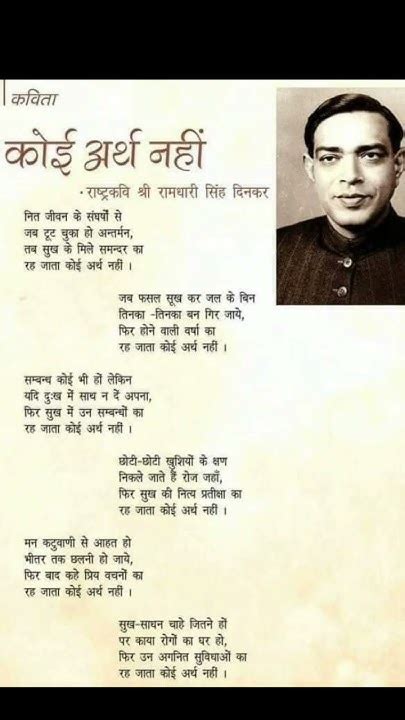 कविता
कोई अर्थ नहीं
• राष्ट्रकवि श्री रामधारी सिंह दिनकर
नित जीवन के संघर्षों से
जब टूट चुका हो अन्तर्मन,
तब सुख के मिले समन्दर का
रह जाता कोई अर्थ नहीं ।
जब फसल सूख कर जल के बिन
तिनका -तिनका बन गिर जाये,
फिर होने वाली वर्षा का
रह जाता कोई अर्थ नहीं ।
सम्बन्ध कोई भी हों लेकिन
यदि दुःख में साथ न दें अपना,
फिर सुख में उन सम्बन्धों का
रह जाता कोई अर्थ नहीं ।
छोटी-छोटी खुशियों के क्षण
निकले जाते हैं रोज जहाँ,
फिर सुख की नित्य प्रतीक्षा का
रह जाता कोई अर्थ नहीं ।
मन कटुवाणी से आहत हो
भीतर तक छलनी हो जाये,
फिर बाद कहे प्रिय वचनों का
रह जाता कोई अर्थ नहीं ।
सुख-साधन चाहे जितने हों
पर काया रोगों का घर हो,
फिर उन अगनित सुविधाओं का
रह जाता कोई अर्थ नहीं ।